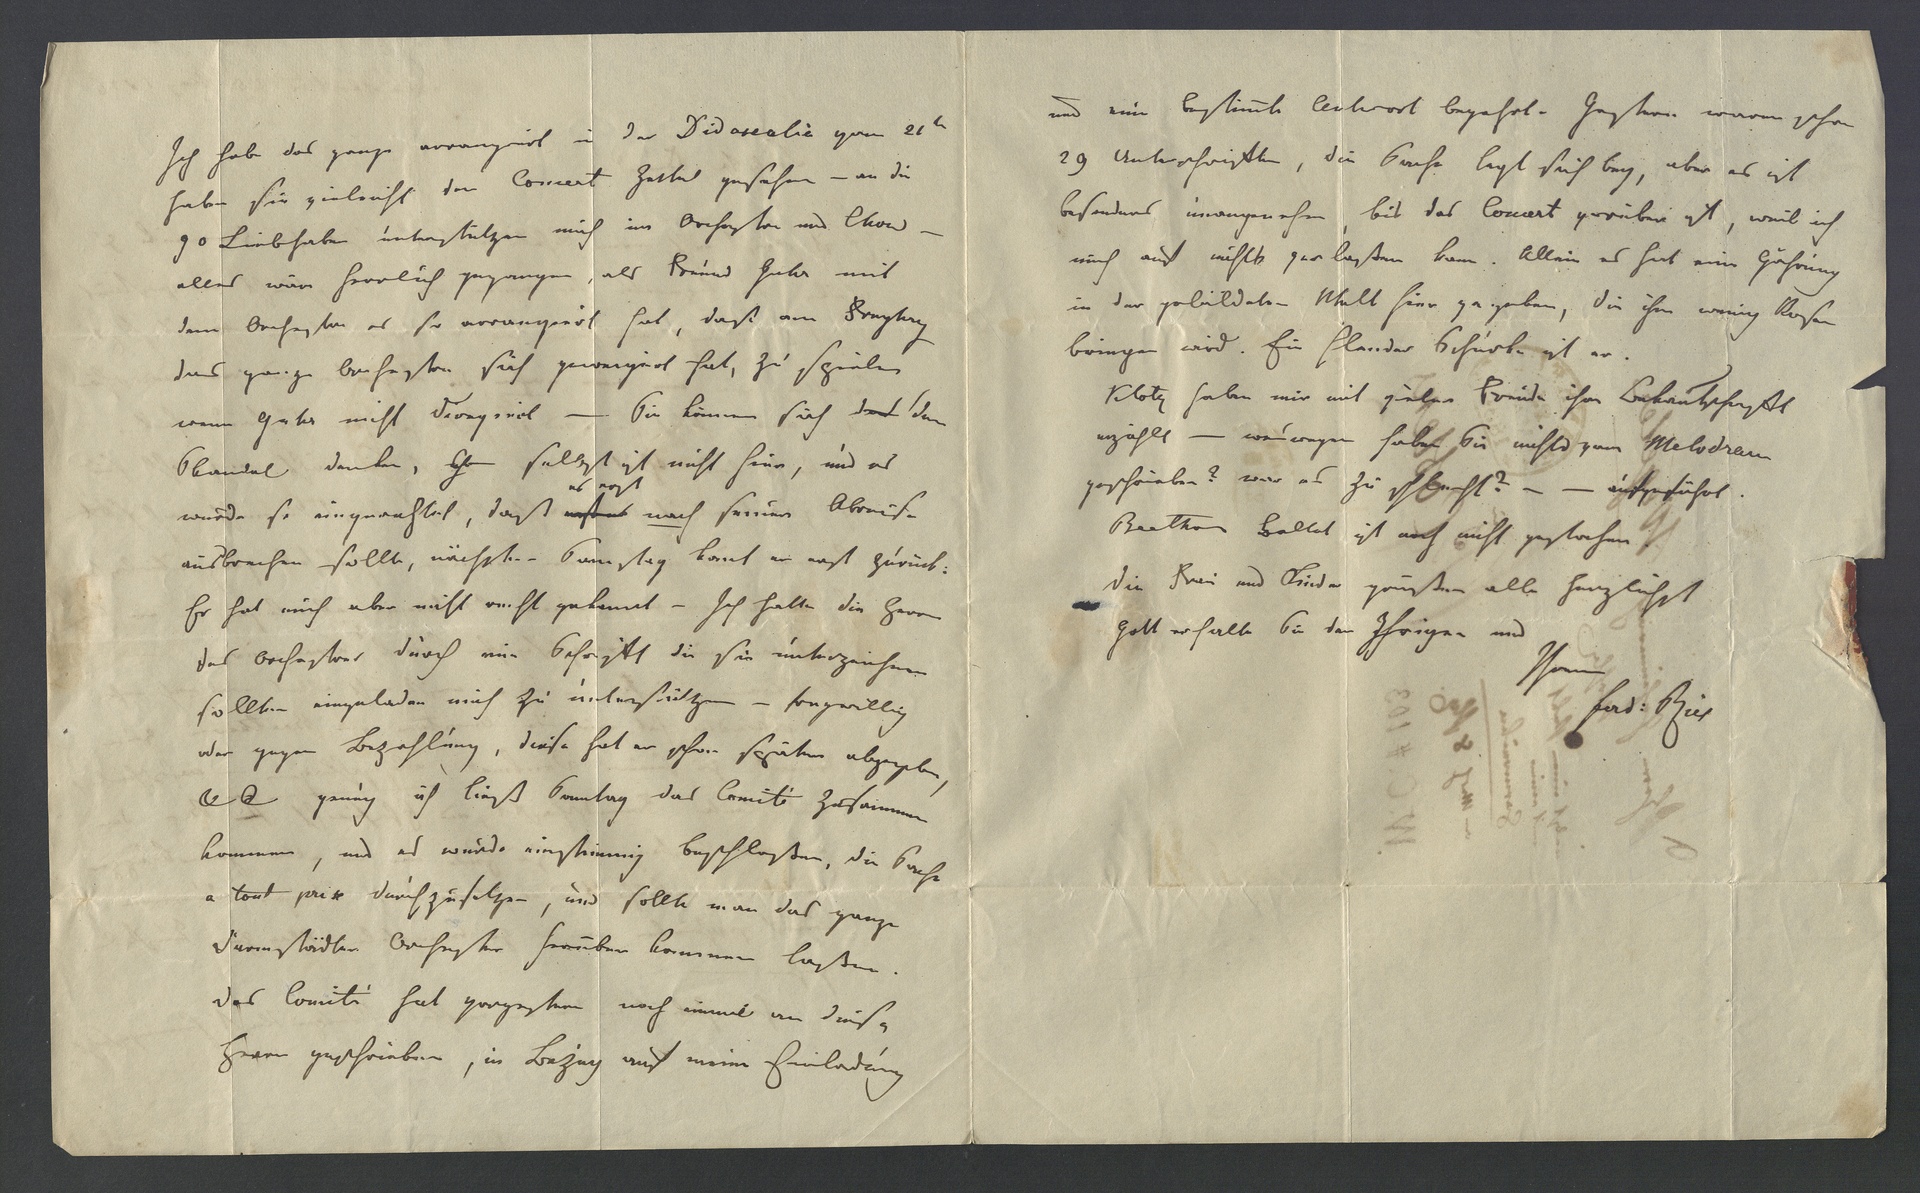 Ich habe das ganze arrangirt in der Didascalia vom 21te
haben Sie vieleicht den Concert Zettel gesehen – an die
90 Liebhaber unterstützen mich im Orchester und Chor –
alles wäre herrlich gegangen, als Freund Guhr mit
dem Orchester es so arrangirt hat, daß am Freytag
das ganze Orchester sich geweigert hat, zu spielen
wenn Guhr nicht dirigirt — Sie können sich den
Skandal denken, selbst ist nicht hier, und es
es erst
wurde so eingerichtet, daß nach seiner Abreise
ausbrechen sollte, nächsten Samstag komt er erst zurück:
Er hat mich aber nicht recht gekannt – Ich hatte die Herrn
des Orchesters durch eine Schrift die sie unterzeichnen
sollten eingeladen mich zu unterstützen – freywillig
oder gegen Bezahlung, diese hat er schon später abgegeben,
genug ich ließ Sonntag das Comité zusammen
kommen, und es wurde einstimmig beschloßen, die Sache
a tout prix durchzusetzen, und sollte man das ganze
Darmstädter Orchester herüber kommen laßen.
Das Comité hat vorgestern noch einmal an diese
Herrn geschrieben, in Bezug auf meine Einladung
und eine bestimte Antwort begehrt– Gestern waren schon
29 Unterschriften, die Sache legt sich bey, aber es ist
besonders unangenehm bis das Concert vorüber ist, weil ich
mich auf nichts verlaßen kann. Allein es hat eine Gährung
in der gebildeten Welt hier gegeben, die ihm wenig Rosen
bringen wird. Ein elender Schurke ist er.
Klotz haben mir mit vieler Freude ihre Bekantschaft
erzählt — weswegen haben Sie nichts vom Melodram
geschrieben? war es zu schlecht? – — aufgeführt.
Beethovens Ballet ist noch nicht gestochen.
Die Frau und Kinder grüßen alle herzlichst
Gott erhalte Sie den Ihrigen und
Ihrem
Ferd: Ries